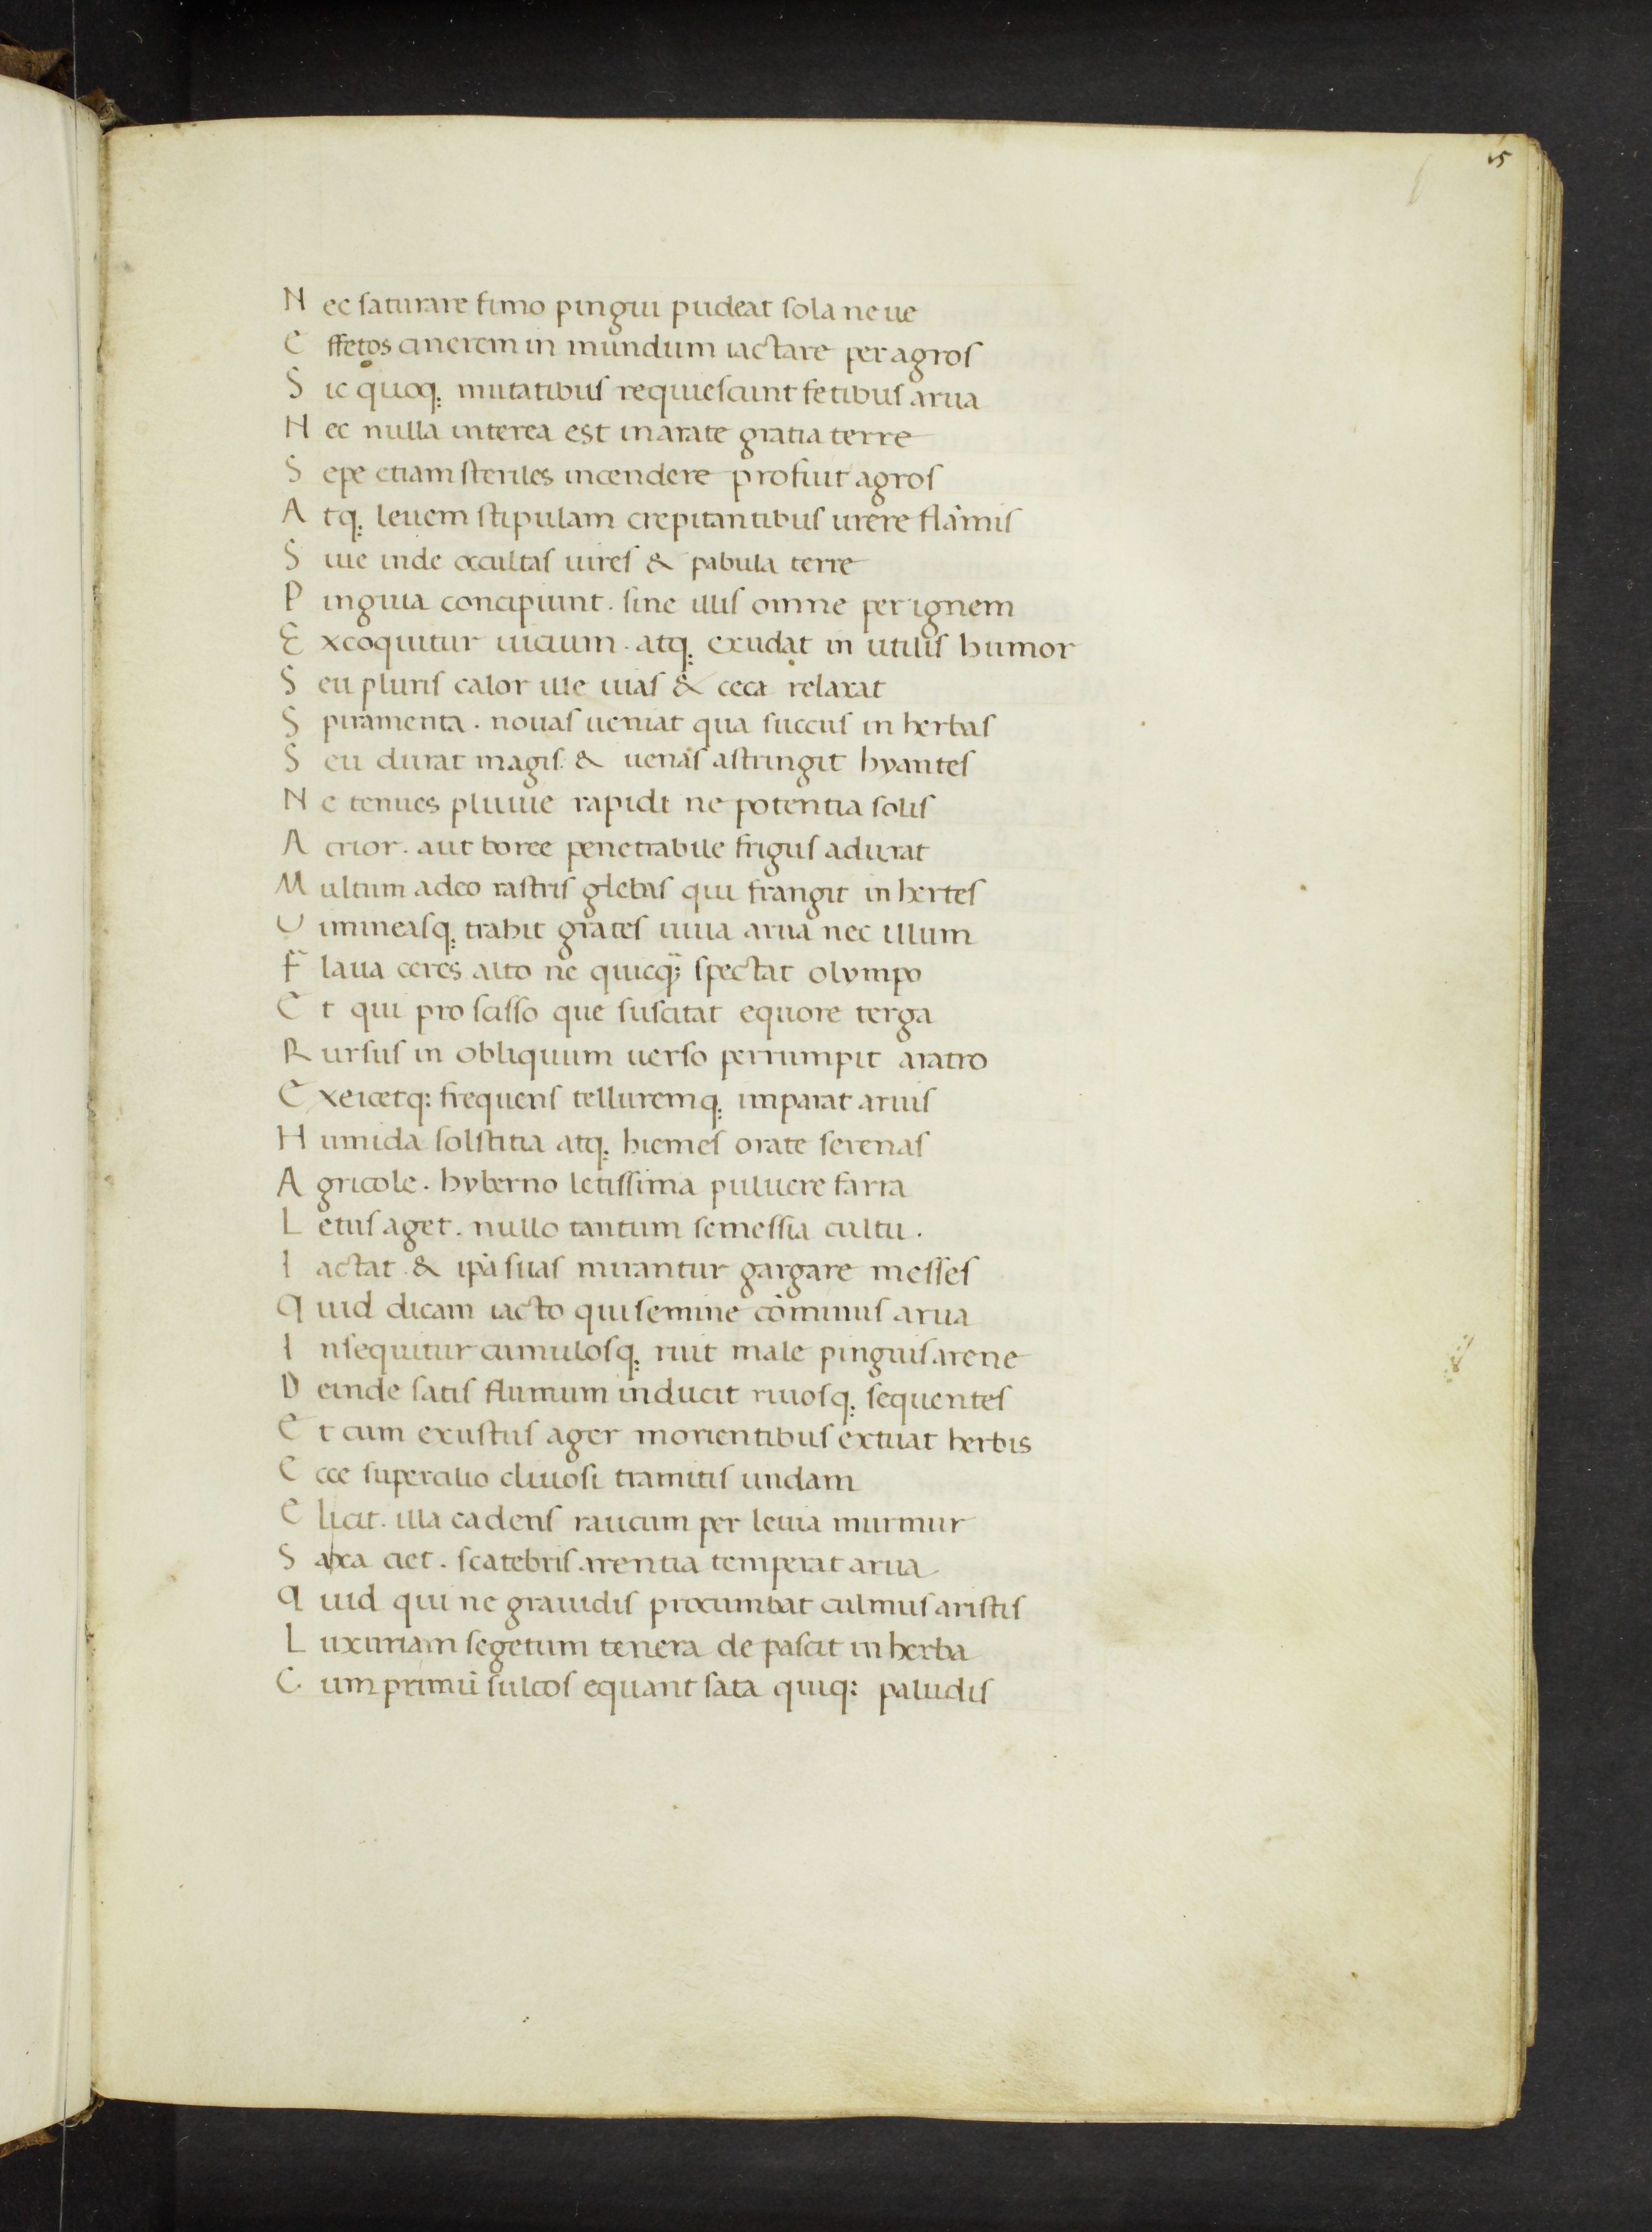 15
N ec saturare fimo pingui pudeat sola ne ue
E ffetos cinerem in mundum iactare per agros
S ic quoq; mutatibus requiescunt fetibus arua
N ec nulla interea est inarate gratia terre
S epe etiam steriles incendere profuit agros
A tq; leuem stipulam crepitantibus urere flāmis
S iue inde occultas uires & pabula terre
P inguia concipiunt. sine illis omne per ignem
E xcoquitur uicium. atq; exudat in utilis humor
S eu pluris calor ille uias & ceca relaxat
S piramenta. nouas ueniat qua succus in herbas
S eu durat magis. & uenas astringit hyantes
N e tenues pluuie rapidi ne potentia solis
A crior. aut boree penetrabile frigus adurat
M ultum adeo rastris glebas qui frangit in hertes
U imineasq; trahit grates iuua arua nec illum
F laua ceres alto ne quicq; spectat olympo
E t qui pro scisso que suscitat equore terga
R ursus in obliquum uerso perrumpit aratro
E xeicetq: frequens telluremq; imparat aruis
H umida solstitia atq; hiemes orate serenas
A gricole. hyberno letissima puluere farra
L etus aget. nullo tantum se messia cultu.
I actat & ipā suas mirantur gargare messes
Q uid dicam iacto qui semine cōminus arua
I nsequitur cumulosq; ruit male pinguis arene
D einde satis flumum inducit riuosq; sequentes
E t cum exustus ager morientibus extuat herbis
E cce supercilio cliuosi tramitis undam
E licit. illa cadens raucum per leuia murmur
S axa ciet. scatebris arentia temperat arua.
Q uid qui ne grauidis procumbat culmus aristis
L uxuriam segetum tenera de pascit in herba
C um primū sulcos equant sata quiq: paludis